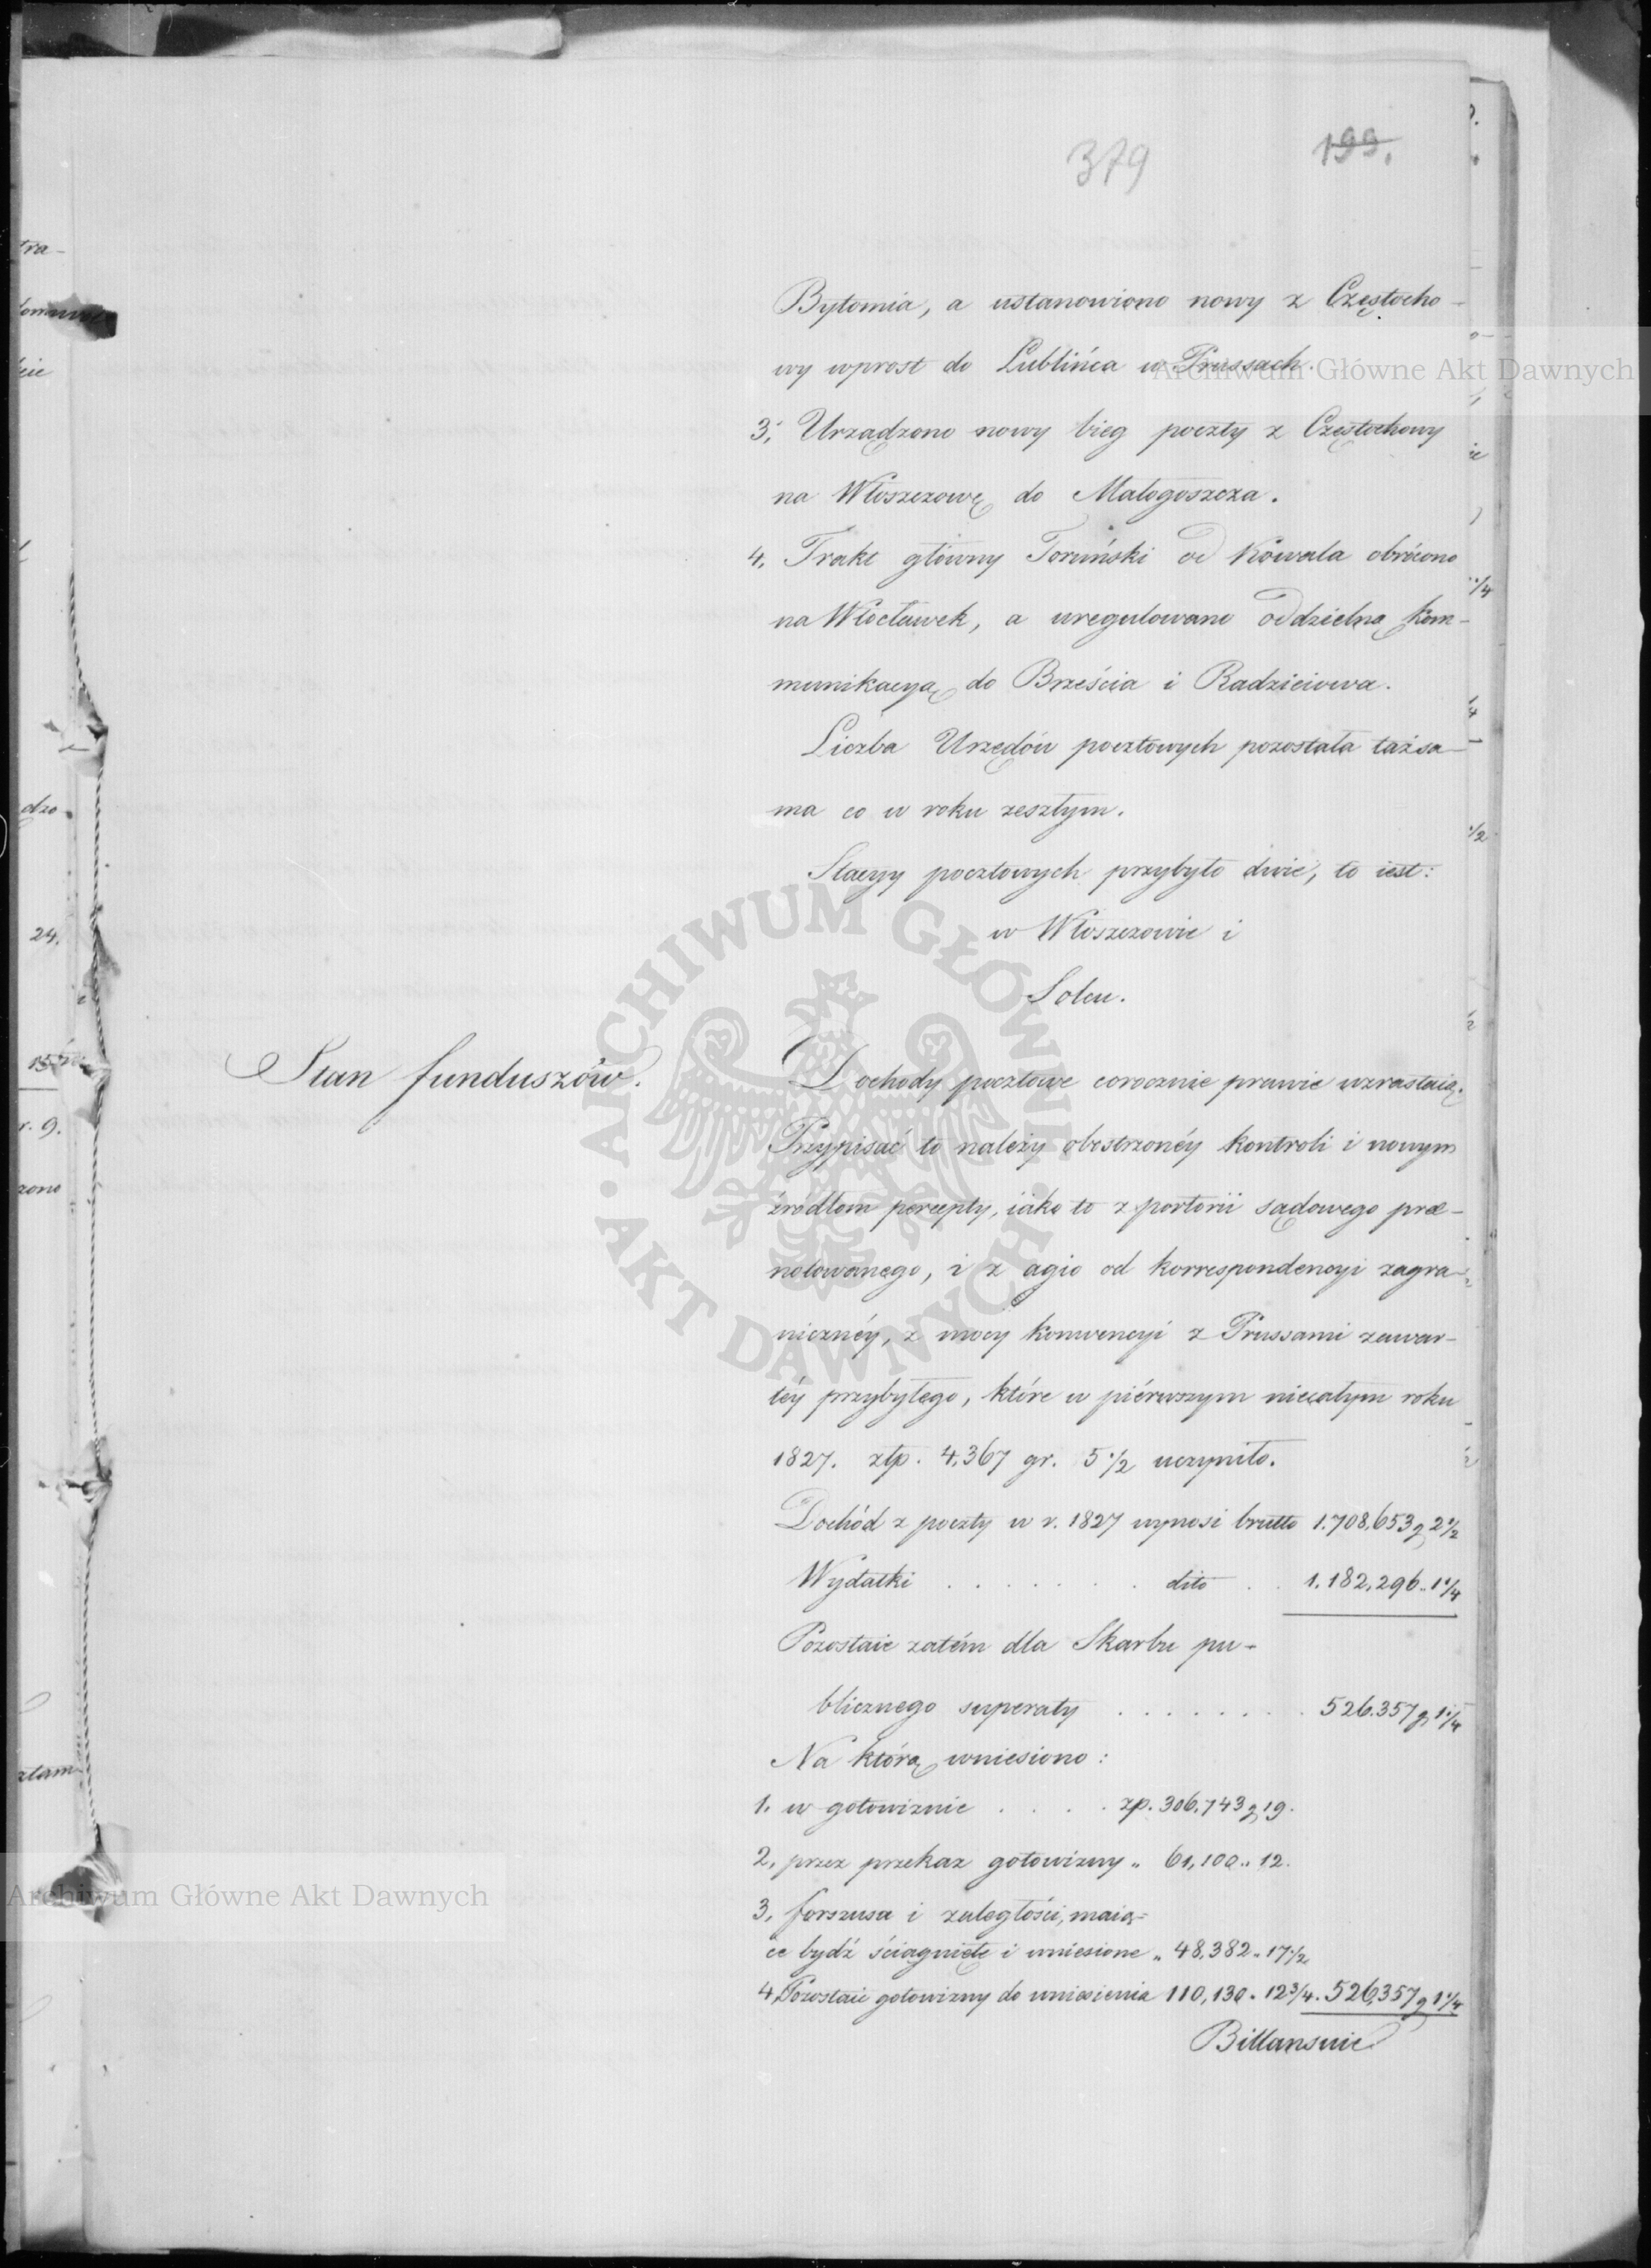 379
199.
Bytomia, a ustanowiono nowy z Częstocho-
wy wprost do Lublińca w Prussach.
3, Urządzono nowy bieg poczty z Częstochowy
na Włoszczowę do Małogoszcza.
4, Trakt główny Toruński od Kowala obrócono
na Włocławek, a uregulowano oddzielną kom-
munikacyą do Brześcia i Radzieiowa.
Liczba Urzędów pocztowych pozostała taż sa-
ma co w roku zeszłym.
Stacyy pocztowych przybyło dwie, to iest:
w Włoszczowie i
Solcu.
Stan funduszów.
Dochody pocztowe corocznie prawie wzrastaią.
Przypisać to należy obostrzonéy kontroli i nowym
źródłom percepty, iako to z portorii sądowego pre-
notowanego, i z agio od korrespondencyi zagra-
nicznéy, z mocy konwencyi z Prussami zawar-
téy przybyłego, które w piérwszym niecałym roku
1827. złp. 4,367 gr. 5 1/2 uczyniło.
Dochód z poczty w r. 1827 wynosi brutto 1.708,653 g 2 1/2
Wydatki . . . . . . . dito . . 1.182,296 " 1 1/4
Pozostaie zatém dla Skarbu pu-
blicznego superaty . . . . . . . 526.357 g 1 1/4
Na którą wniesiono:
1, w gotowiznie . . . . zp. 306,743 g 19.
2, przez przekaz gotowizny " 61,100 " 12.
3, forszusa i zaległości, maią=
ce bydź ściągnięte i wniesione " 48,382 " 17 1/2
4, Pozostaie gotowizny do wniesienia 110,130 " 12 3/4. 526,357 g 1 1/4
Billansuie
tra-
dzo
24.
r. 9.
zono
złam
Archiwum Główne Akt Dawnych
ARCHIWUM GŁÓWNE · AKT DAWNYCH ·
Archiwum Główne Akt Dawnych